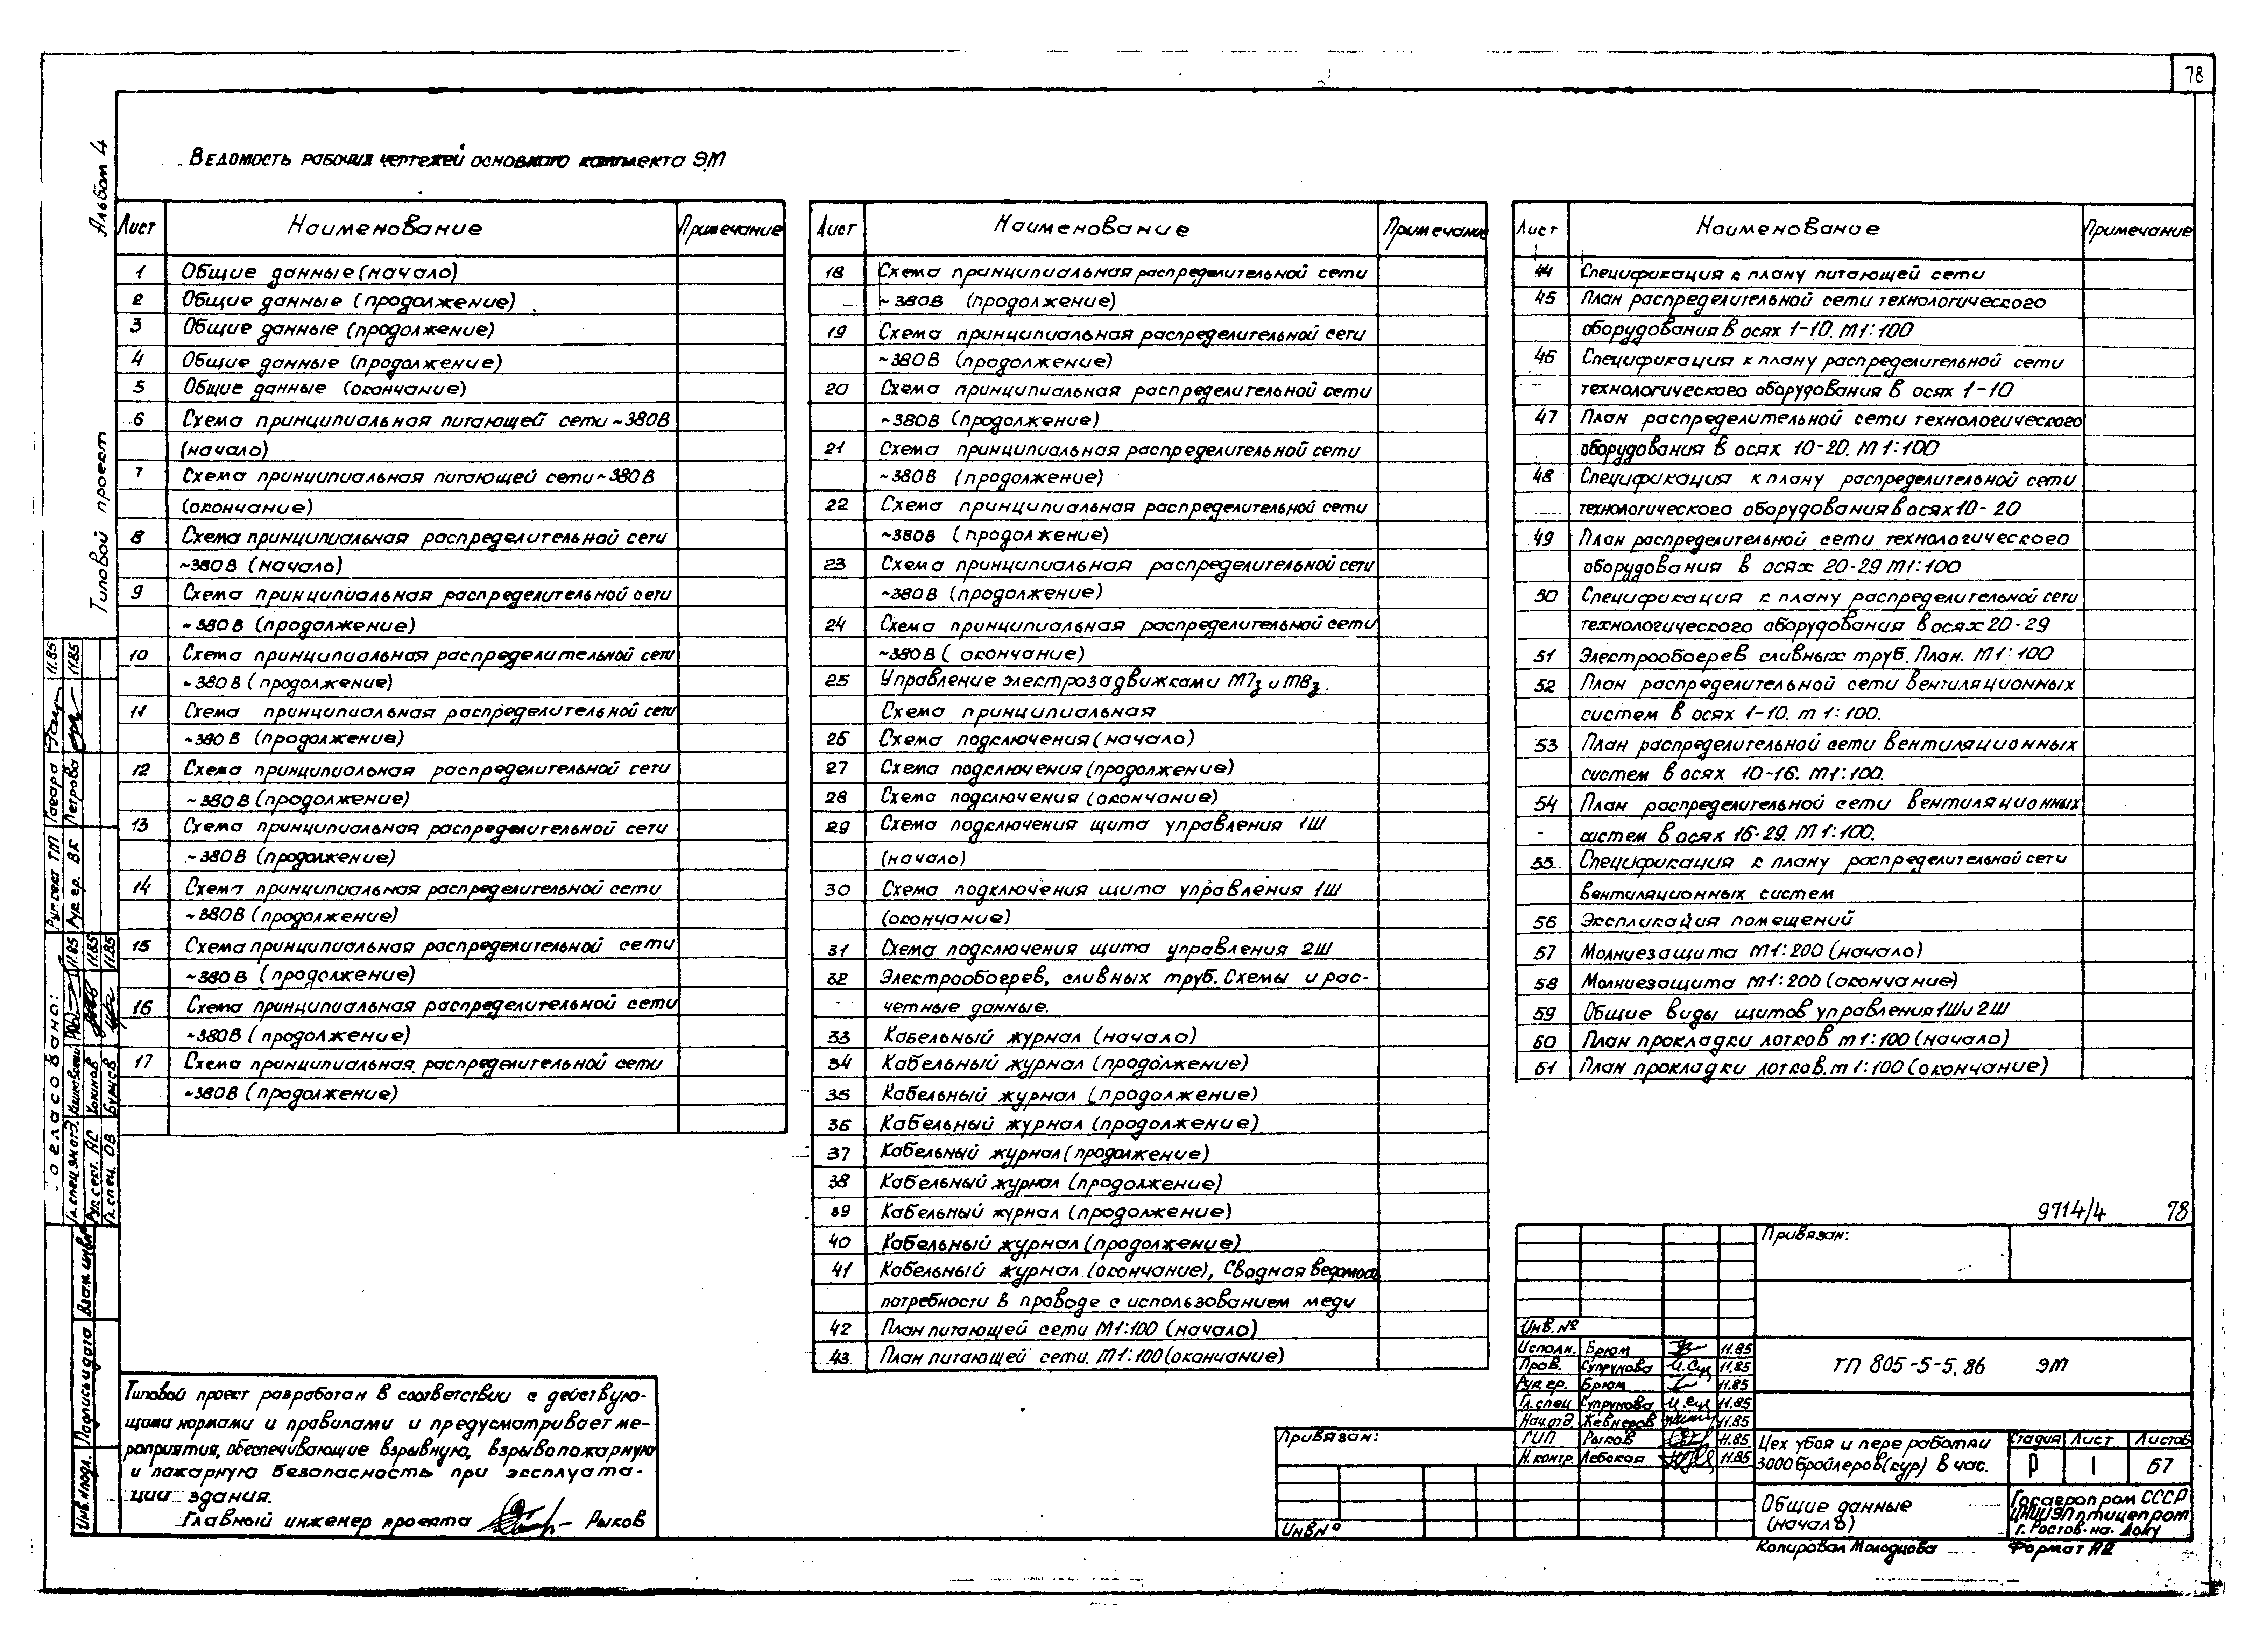 78
Альбом 4
Типовой проект
Ведомость рабочих чертежей основного комплекта ЭМ
Лист Наименование Примечание
1 Общие данные (начало)
2 Общие данные (продолжение)
3 Общие данные (продолжение)
4 Общие данные (продолжение)
5 Общие данные (окончание)
6 Схема принципиальная питающей сети ~380В
(начало)
7 Схема принципиальная питающей сети ~380В
(окончание)
8 Схема принципиальная распределительной сети
~380В (начало)
9 Схема принципиальная распределительной сети
~380В (продолжение)
10 Схема принципиальная распределительной сети
~380В (продолжение)
11 Схема принципиальная распределительной сети
~380В (продолжение)
12 Схема принципиальная распределительной сети
~380В (продолжение)
13 Схема принципиальная распределительной сети
~380В (продолжение)
14 Схема принципиальная распределительной сети
~380В (продолжение)
15 Схема принципиальная распределительной сети
~380В (продолжение)
16 Схема принципиальная распределительной сети
~380В (продолжение)
17 Схема принципиальная распределительной сети
~380В (продолжение)
Лист Наименование Примечание
18 Схема принципиальная распределительной сети
~380В (продолжение)
19 Схема принципиальная распределительной сети
~380В (продолжение)
20 Схема принципиальная распределительной сети
~380В (продолжение)
21 Схема принципиальная распределительной сети
~380В (продолжение)
22 Схема принципиальная распределительной сети
~380В (продолжение)
23 Схема принципиальная распределительной сети
~380В (продолжение)
24 Схема принципиальная распределительной сети
~380В (окончание)
25 Управление электрозадвижками М7з и М8з.
Схема принципиальная
26 Схема подключения (начало)
27 Схема подключения (продолжение)
28 Схема подключения (окончание)
29 Схема подключения щита управления 1Ш
(начало)
30 Схема подключения щита управления 1Ш
(окончание)
31 Схема подключения щита управления 2Ш
32 Электрообогрев, сливных труб. Схемы и рас-
четные данные.
33 Кабельный журнал (начало)
34 Кабельный журнал (продолжение)
35 Кабельный журнал (продолжение)
36 Кабельный журнал (продолжение)
37 Кабельный журнал (продолжение)
38 Кабельный журнал (продолжение)
39 Кабельный журнал (продолжение)
40 Кабельный журнал (продолжение)
41 Кабельный журнал (окончание), Сводная ведомость
потребности в проводе с использованием меди
42 План питающей сети М1:100 (начало)
43 План питающей сети. М1:100 (окончание)
Лист Наименование Примечание
44 Спецификация к плану питающей сети
45 План распределительной сети технологического
оборудования в осях 1-10. М1:100
46 Спецификация к плану распределительной сети
технологического оборудования в осях 1-10
47 План распределительной сети технологического
оборудования в осях 10-20. М1:100
48 Спецификация к плану распределительной сети
технологического оборудования в осях 10-20
49 План распределительной сети технологического
оборудования в осях 20-29 М1:100
50 Спецификация к плану распределительной сети
технологического оборудования в осях 20-29
51 Электрообогрев сливных труб. План. М1:100
52 План распределительной сети вентиляционных
систем в осях 1-10. М1:100.
53 План распределительной сети вентиляционных
систем в осях 10-16. М1:100.
54 План распределительной сети вентиляционных
систем в осях 16-29. М1:100.
55 Спецификация к плану распределительной сети
вентиляционных систем
56 Экспликация помещений
57 Молниезащита М1:200 (начало)
58 Молниезащита М1:200 (окончание)
59 Общие виды щитов управления 1Ш и 2Ш
60 План прокладки лотков М1:100 (начало)
61 План прокладки лотков. М1:100 (окончание)
Типовой проект разработан в соответствии с действую-
щими нормами и правилами и предусматривает ме-
роприятия, обеспечивающие взрывную, взрывопожарную
и пожарную безопасность при эксплуата-
ции здания.
Главный инженер проекта Рыков
Согласовано:
Рук. сект ТМ Гагара 11.85
Рук. гр. ВК Петрова 11.85
Гл. спец. эл. отд. 11.85
Рук. сект. АС 11.85
Гл. спец. ОВ 11.85
Взам. инв. №
Подпись и дата
Инв. № подл.
Привязан:
Инв №
9714/4 78
Привязан:
Инв. №
Исполн. Брюм 11.85
Пров. Супрунова 11.85
Рук. гр. Брюм 11.85
Гл. спец Супрунова 11.85
Нач. отд Жевнеров 11.85
ГИП Рыков 11.85
Н. контр. 11.85
ТП 805-5-5.86 ЭМ
Цех убоя и переработки
3000 бройлеров (кур) в час.
Стадия Лист Листов
Р 1 67
Общие данные
(начало)
Госагропром СССР
ЦНИИЭПптицепром
г. Ростов-на-Дону
Копировал Молодцова
Формат А2